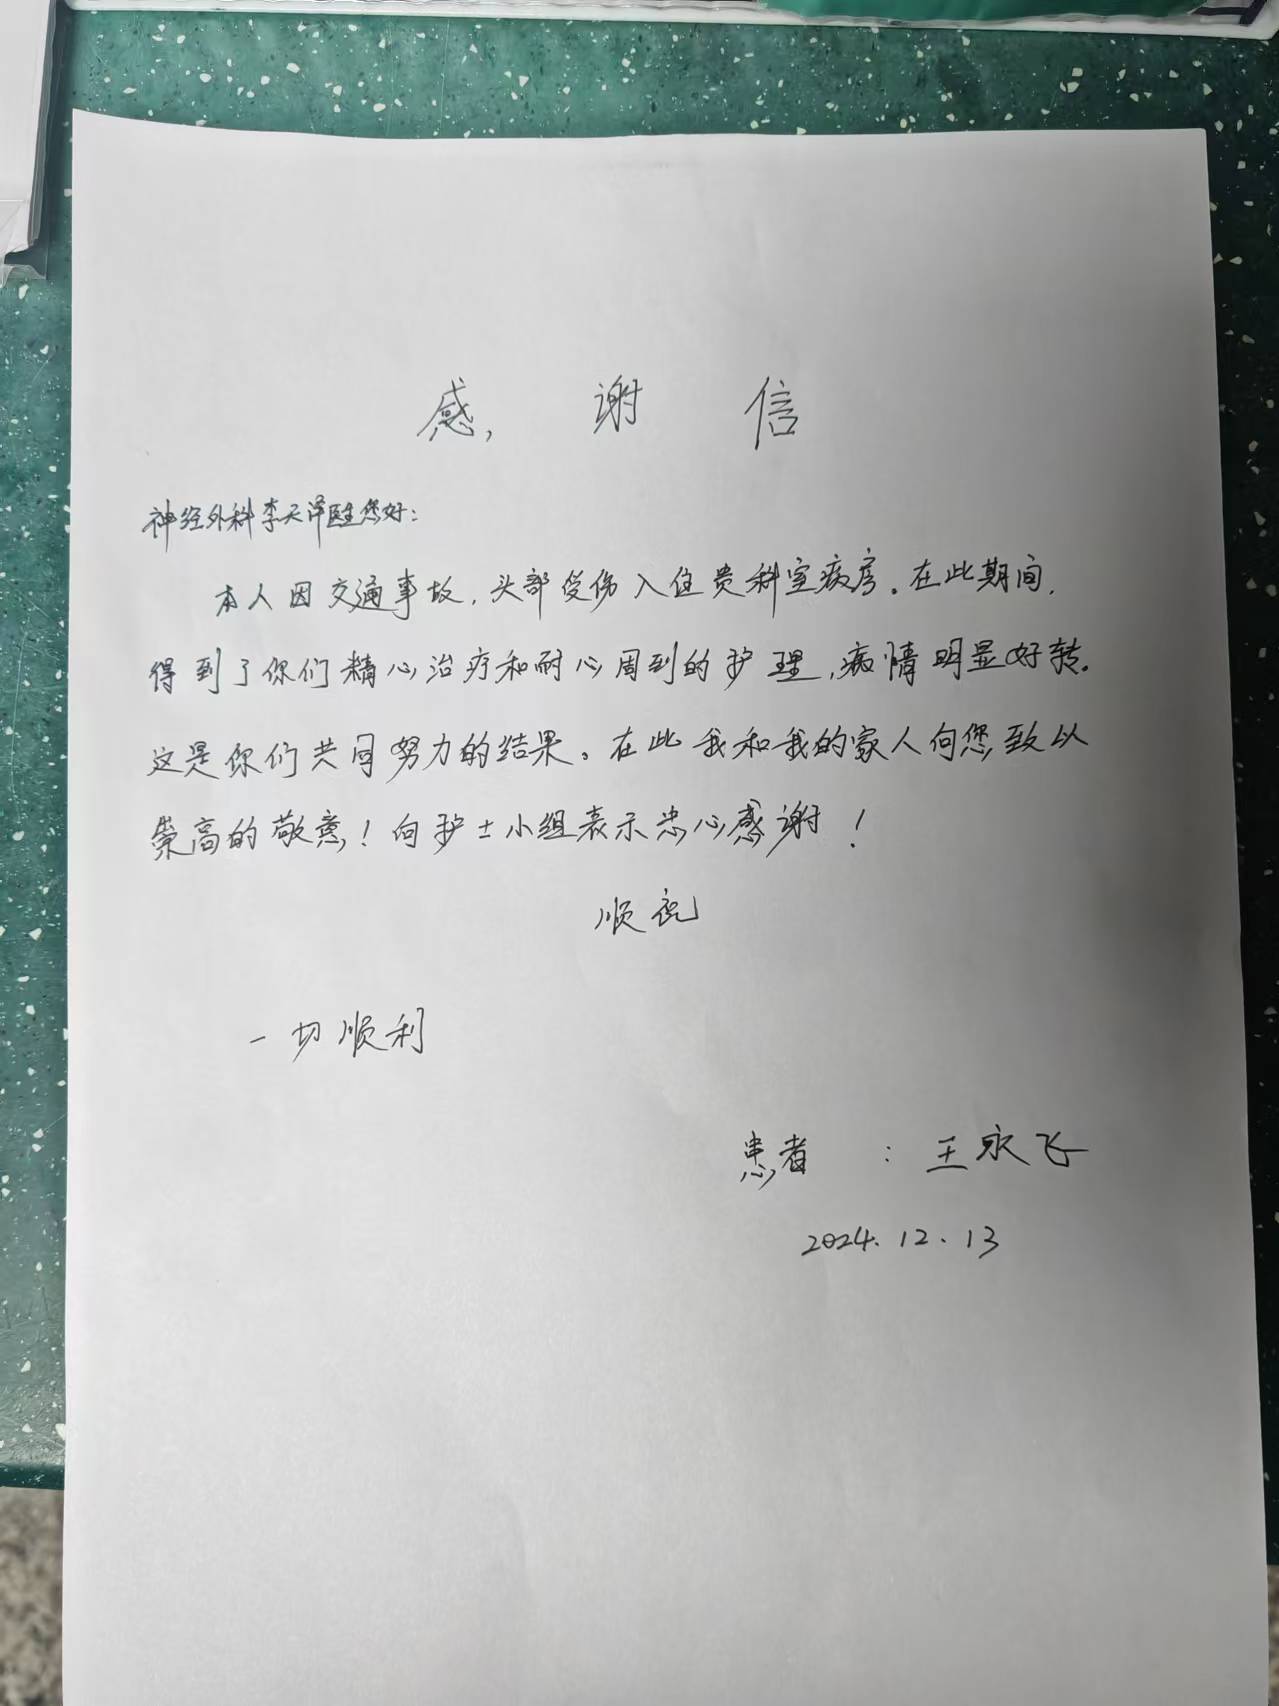 感谢信
神经外科李天泽医生您好：
本人因交通事故，头部受伤入住贵科室病房。在此期间，
得到了你们精心治疗和耐心周到的护理，病情明显好转。
这是你们共同努力的结果。在此我和我的家人向您致以
崇高的敬意！向护士小组表示忠心感谢！
顺祝
一切顺利
患者：王永飞
2024.12.13